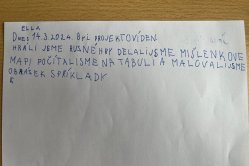 ELLA
DNES 14.3.2024 BYL PROJEKTOVÍDEN
HRÁLI JSME RUSNÉ HRY DĚLALIJSME MIŠLENKOVÉ
MAPI POČÍTALISME NA TABULI A MALOVALIJSME
OBRÁSEK SPŘÍKLADY